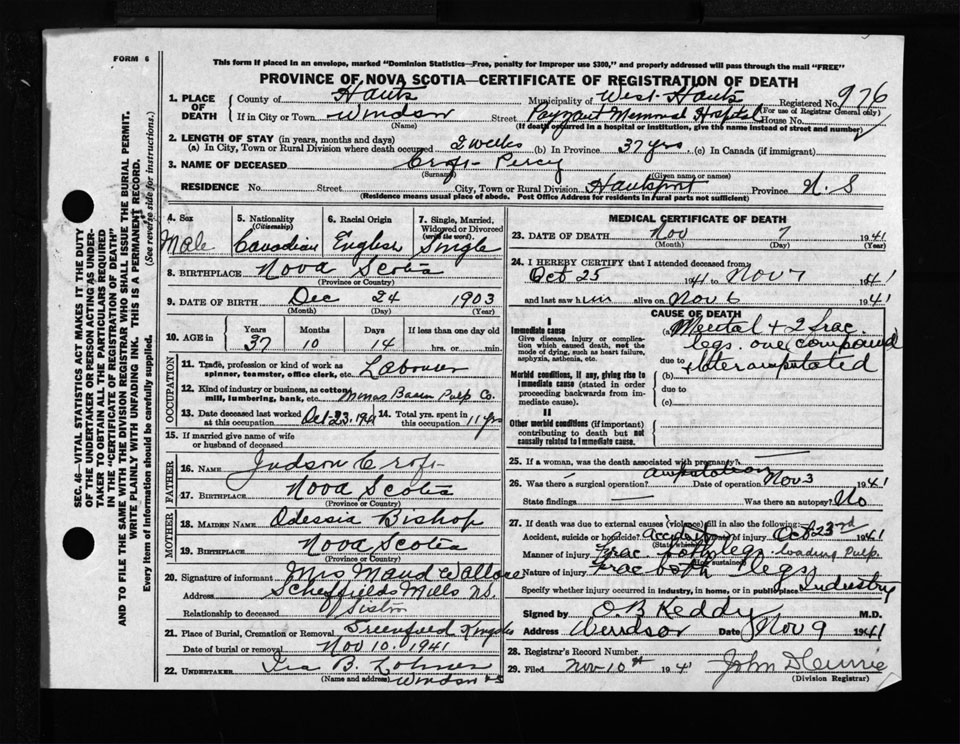 FORM 6
This form if placed in an envelope, marked "Dominion Statistics—Free, penalty for improper use $300," and properly addressed will pass through the mail "FREE"
PROVINCE OF NOVA SCOTIA—CERTIFICATE OF REGISTRATION OF DEATH
SEC. 46—VITAL STATISTICS ACT MAKES IT THE DUTY
OF THE UNDERTAKER OR PERSON ACTING AS UNDER-
TAKER TO OBTAIN ALL THE PARTICULARS REQUIRED
IN THE "CERTIFICATE OF REGISTRATION OF DEATH"
AND TO FILE THE SAME WITH THE DIVISION REGISTRAR WHO SHALL ISSUE THE BURIAL PERMIT.
WRITE PLAINLY WITH UNFADING INK. THIS IS A PERMANENT RECORD.
Every item of information should be carefully supplied. (See reverse side for instructions.)
1. PLACE OF DEATH County of Hants Municipality of West Hants Registered No. 976
(For use of Registrar General only)
If in City or Town Windsor Street Payzant Memorial Hospital House No.
(Name) (If death occurred in a hospital or institution, give the name instead of street and number)
2. LENGTH OF STAY (in years, months and days)
(a) In City, Town or Rural Division where death occurred 2 weeks (b) In Province 37 yrs (c) In Canada (if immigrant)
3. NAME OF DECEASED Croft Percy
(Surname) (Given name or names)
RESIDENCE No. Street City, Town or Rural Division Hantsport Province N. S
(Residence means usual place of abode. Post Office Address for Residents in rural parts not sufficient)
4. Sex Male
5. Nationality (Citizenship) Canadian
6. Racial Origin English
7. Single, Married, Widowed or Divorced (write the word) Single
8. BIRTHPLACE Nova Scotia
(Province or Country)
9. DATE OF BIRTH Dec 24 1903
(Month) (Day) (Year)
10. AGE in Years 37 Months 10 Days 14 If less than one day old hrs. or min.
OCCUPATION
11. Trade, profession or kind of work as spinner, teamster, office clerk, etc. Labourer
12. Kind of industry or business, as cotton mill, lumbering, bank, etc. Minas Basin Pulp Co.
13. Date deceased last worked at this occupation Oct-23-1941 14. Total yrs. spent in this occupation 11 yrs
15. If married give name of wife or husband of deceased
FATHER
16. NAME Judson Croft
17. BIRTHPLACE Nova Scotia
(Province or Country)
MOTHER
18. MAIDEN NAME Odessia Bishop
19. BIRTHPLACE Nova Scotia
(Province or Country)
20. Signature of informant Mrs Maud Wallace
Address Scheffields Mills N.S.
Relationship to deceased Sister
21. Place of Burial, Cremation or Removal Greenfield Kings Co
Date of burial or removal Nov 10. 1941
22. UNDERTAKER Ira B. Lohnes
(Name and address) Windsor NS
MEDICAL CERTIFICATE OF DEATH
23. DATE OF DEATH Nov 7 1941
(Month) (Day) (Year)
24. I HEREBY CERTIFY that I attended deceased from
Oct 25 1941 to Nov 7 1941
and last saw him alive on Nov 6 1941
CAUSE OF DEATH
I
Immediate cause
Give disease, injury or complication which caused death, not the mode of dying, such as heart failure, asphyxia, asthenia, etc.
(a) Mental + 2 frac. legs. one compound
due to
(b) + later amputated
Morbid conditions, if any, giving rise to immediate cause (stated in order proceeding backwards from immediate cause).
due to
(c)
II
Other morbid conditions (if important) contributing to death but not causally related to immediate cause.
25. If a woman, was the death associated with pregnancy?
26. Was there a surgical operation? Amputation Date of operation Nov 3 1941
State findings Was there an autopsy? No
27. If death was due to external causes (violence) fill in also the following:
Accident, suicide or homicide? accident Date of injury Oct 23rd 1941
(State which)
Manner of injury Frac. both legs. loading Pulp.
(How sustained)
Nature of injury Frac both legs
Specify whether injury occurred in industry, in home, or in public place Industry
Signed by O B Keddy M.D.
Address Windsor Date Nov 9 1941
28. Registrar's Record Number
29. Filed Nov 10th 1941
(Division Registrar)